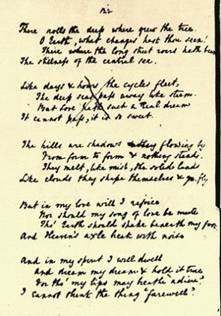 There rolls the deep where grew the tree.
O Earth, what changes hast thou seen!
There where the long street roars hath been
The stillness of the central sea.
Like days & hours the cycles fleet,
The deep seas pass away like steam.
But love such a real dream
It cannot pass, it is so sweet.
The hills are shadows flowing by
From form to form & nothing stands.
They melt, like mist, the solid lands
Like clouds they shape themselves & fly
But in my love will I rejoice
Nor should my song of love be mute
Tho' Earth should shake beneath my foot,
And Heaven's axle break with noise
And in my spirit I will dwell
And dream my dream & hold it true
For tho' my lips may breathe "adieu"
I cannot think the thing "farewell"